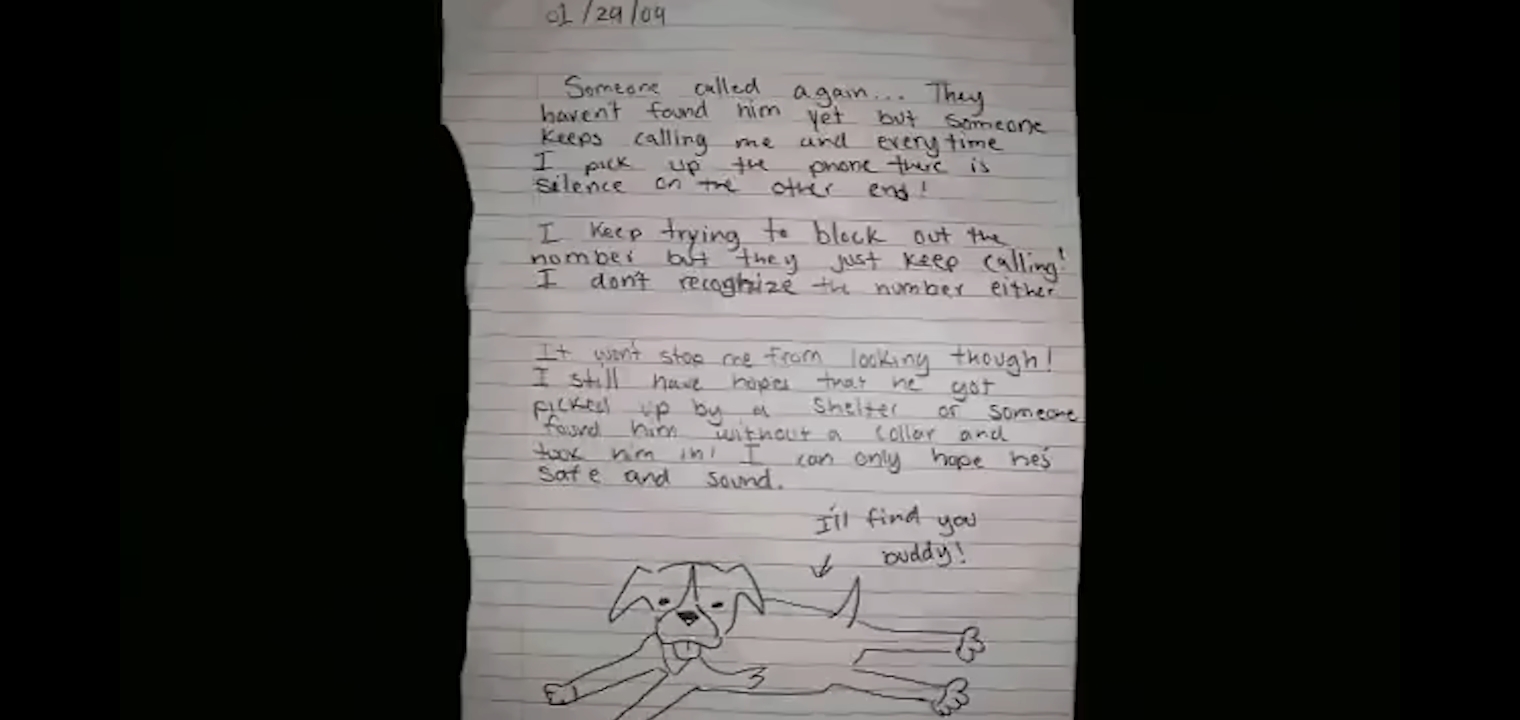 01/29/09
Someone called again... They
haven't found him yet but someone
keeps calling me and everytime
I pick up the phone there is
silence on the other end!
I keep trying to block out the
number but they just keep calling!
I don't recoghize the number either
It won't stop me from looking though!
I still have hopes that he got
picked up by a shelter or someone
found him without a collar and
took him in! I can only hope he's
safe and sound.
I'll find you
buddy!